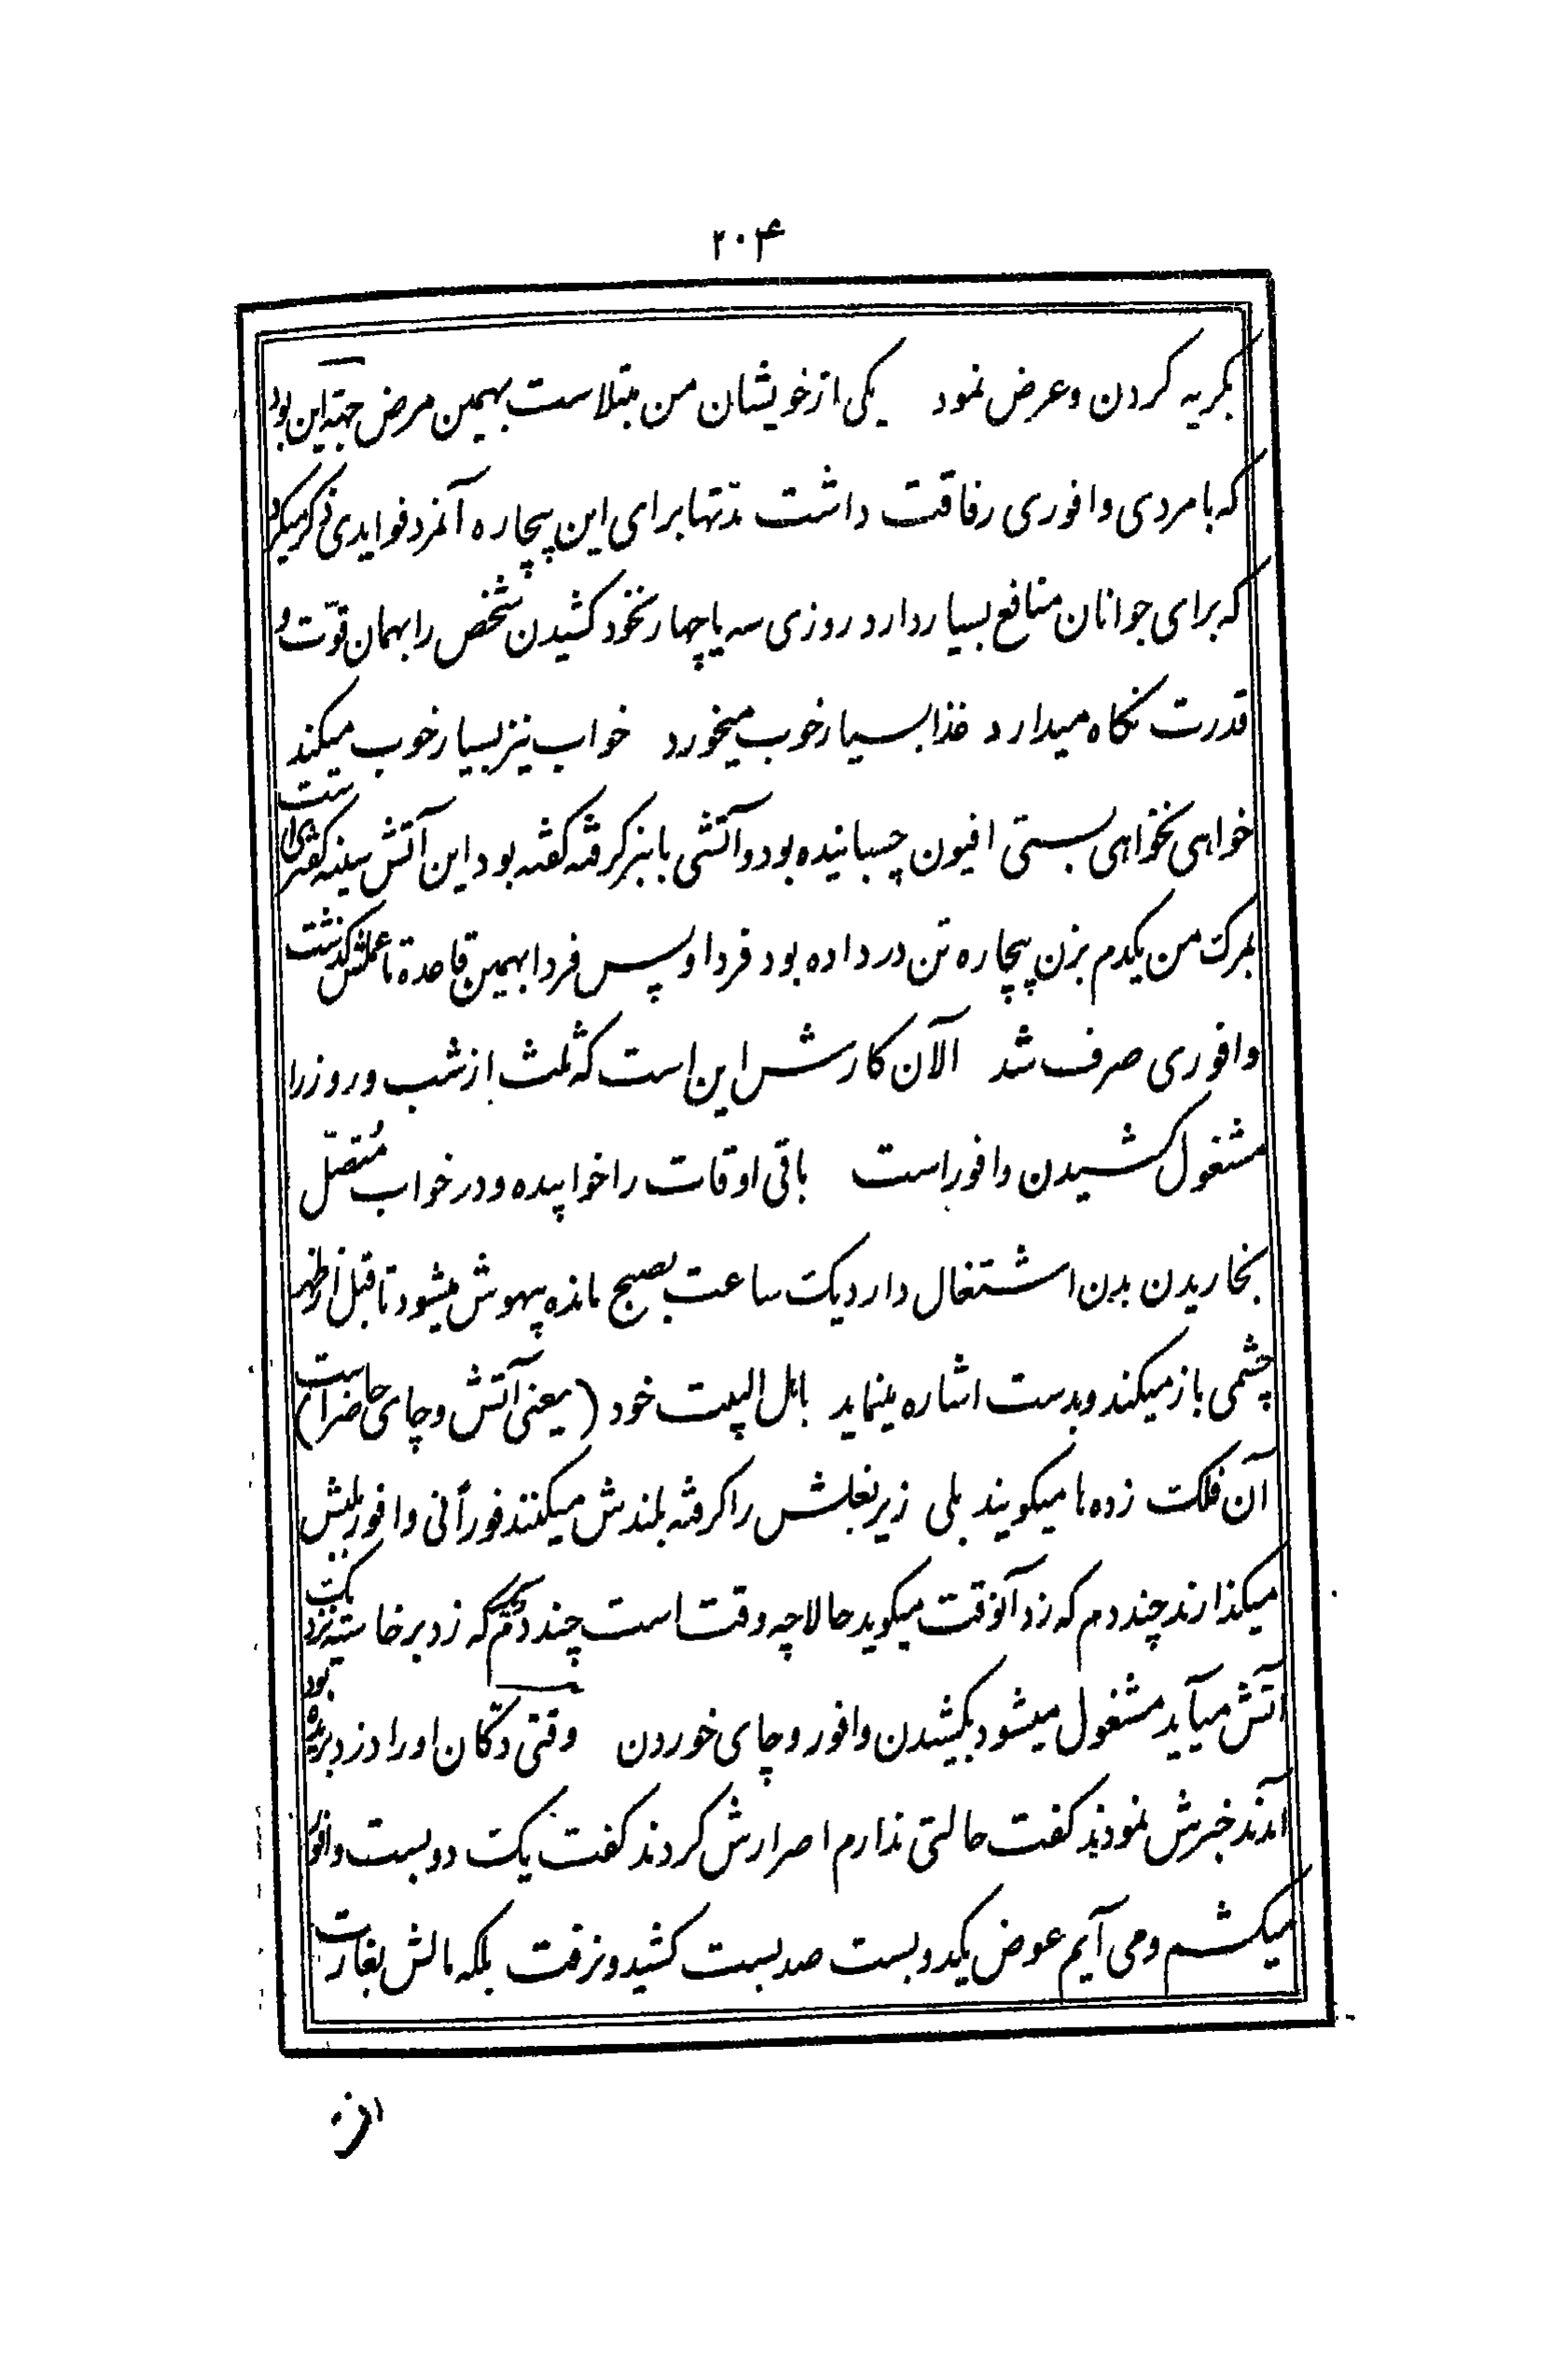 ۲۰۴
بکریه کردن و عرض نمود یکی از خویشان من مبتلاست بهمین مرض جهة این بود
که با مردی وافوری رفاقت داشت مدّتها برای این بیچاره آنمرد فوایدی ذکر میکرد
که برای جوانان منافع بسیار دارد روزی سه یا چهار نخود کشیدن شخص را بهمان قوّت و
قدرت نکاه میدارد غذا بسیار خوب میخورد خواب نیز بسیار خوب میکند
خواهی نخواهی بستی افیون چسبانیده بود و آتشی با نبر کرفته کفته بود این آتش سینه کفتری است
بمرک من یکدم بزن بیچاره تن در داده بود فردا و پس فردا بهمین قاعدة تا عملش کذشت
وافوری صرف شد الآن کارش این است که ثلث از شب و روز را
مشغول کشیدن وافور است باقی اوقات را خوابیده و در خواب مُتصّل
بخاریدن بدن اشتغال دارد یک ساعت بصبح مانده بیهوش میشود تا قبل از ظهر
چشمی باز میکند و بدست اشاره مینماید باهل البیت خود (یعنی آتش و چای حاضر است)
آن فلک زده ها میکویند بلی زیر بغلش را کرفته بلندش میکنند فوراً نی وافور بلبش
میکذارند چند دم که زد آنوقت میکوید حالا چه وقت است چند دم دیگر که زد برخاسته نزدیک
آتش میآید مشغول میشود بکشیدن وافور و چای خوردن وقتی دکّان او را دزد بریده بود
آمدند خبرش نمودند کفت حالتی ندارم اصرارش کردند کفت یک دو بست وافور
میکشم و می آیم عوض یکدو بست صد بست کشید و نرفت بلکه مالش بغارت